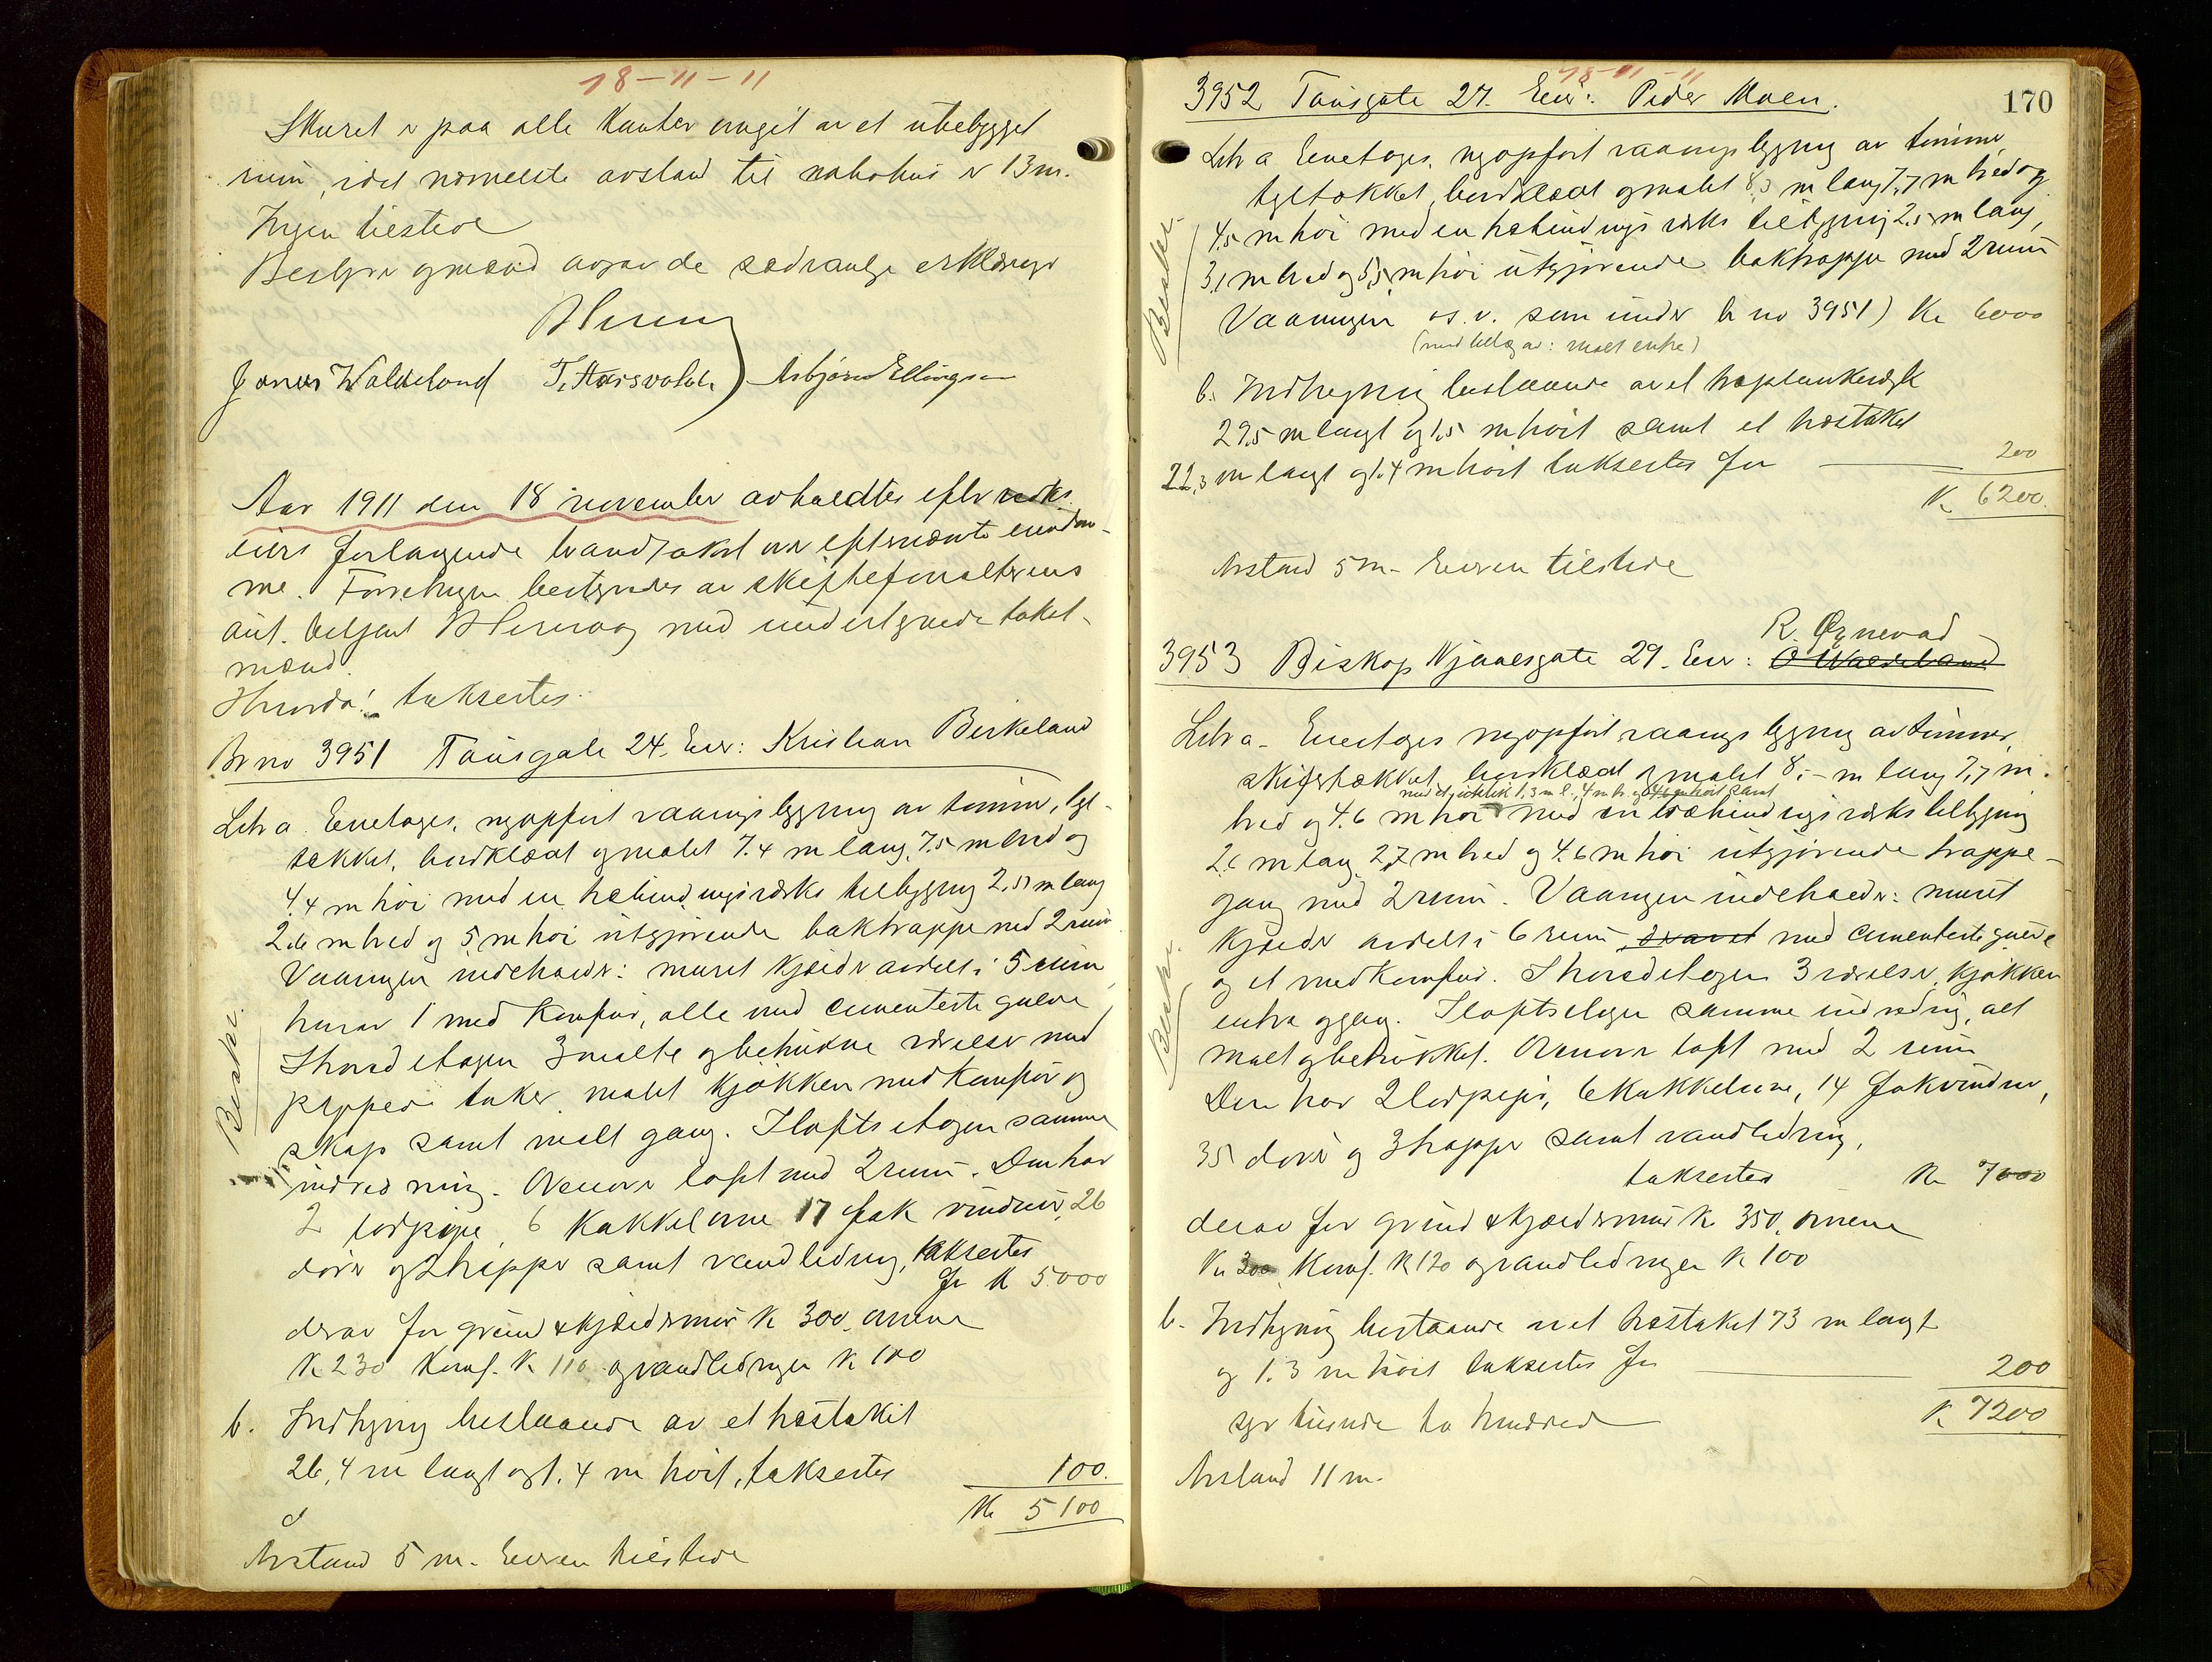 18-11-11
Skuret er paa alle kanter omgit av et ubebygget
rum, idet nærmeste avstand til nabohus er 13 m.
Ingen tilstede
Bestyrer og mænd avgav de sædvanlige erklæringer
Jonas Waldeland T. Aarsvold Asbjørn Ellingsen
Aar 1911 den 18 november avholdtes efter
eiers forlangende brandtakst over efternævnte eiendom-
me. Forretningen bestyredes av skifteforvalterens
aut. betjent med undertegnede takst-
mænd.
Hvorda! taksertes.
Br no 3951 Tausgate 24. Eier: Kristian Birkeland
Litr a Enetages, nyopført vaaningsbygning av tømmer, tgl-
tækket, bordklædt og malet 7.4 m lang, 7.5 m bred og
4.4 m høi med en træbindingsværks tilbygning 2.5 m lang
2.6 m bred og 5 m høi utgjørende baktrappe med 2 rum
Vaaningen indeholder: muret kjælder avdelt i 5 rum
hvorav 1 med komfur, alle med cementerte gulve
I hovedetagen 3 malte og betrukne værelser med
pappede taker, malet kjøkken med komfur og
skap samt malt gang. I loftsetagen samme
indredning. Ovenover loft med 2 rum. Den har
2 lodpiper, 6 kakkelovne 17 fak vinduer, 26
dører og 2 trapper samt vandledning, taksertes
for K 5000
derav for grund & kjældermur K 300, ovnene
K 230 Komf. K 110 og vandledningen K 100
b. Indhegning bestaaende av et træstakit
26,4 m langt og 1.4 m høit, taksertes 100.
Kr 5100
Avstand 5 m. Eieren tilstede
Beskr.
18-11-11
170
3952 Tausgate 27. Eier: Peder Moen.
Litr a Enetages, nyopført vaaningsbygning av tømmer,
tgltækket, bordklædt og malet 8,3 m lang 7,7 m bred og
4,5 m høi med en træbindingsværks tilbygning 2,5 m lang,
3,1 m bred og 5,5 m høi utgjørende baktrappe med 2 rum
Vaaningen o.s.v. som under br no 3951) Kr 6000
(med tillæg av: malt entre)
b. Indhegning bestaaende av et træplankeværk
29,5 m langt og 1,5 m høit samt et træstakit
22,3 m langt og 1.4 m høit taksertes for 200
K 6200.
Avstand 5 m. Eieren tilstede
R. Øgnevad
3953 Biskop Njaalsgate 29. Eier: O Waldeland
Litr a. Enetages nyopført vaaningsbygning av tømmer,
skifertækket, bordklædt og malet 8,- m lang 7,7 m.
bred og 4.6 m høi med en træbindingsværks tilbygning
2,6 m lang 2,7 m bred og 4.6 m høi utgjørende trappe-
gang med 2 rum. Vaaningen indeholder: muret
kjælder avdelt i 6 rum, hvorav et med cementerte gulve
og et med komfur. I hovedetagen 3 værelser, kjøkken
entre og gang. I loftsetagen samme indredning, alt
malt og betrukket. Ovenover loft med 2 rum
Den har 2 lodpiper, 6 kakkelovne, 14 fak vinduer,
35 dører og 3 trapper samt vandledning,
taksertes Kr 7000
derav for grund & kjældermur K 350, ovnene
Kr 300 Komf. K 120 og vandledningen K 100
b. Indhegning bestaaende av et træstakit 73 m langt
og 1.3 m høit taksertes for 200
syv tusinde to hundred K 7200
Avstand 11 m.
Beskr.
Beskr.